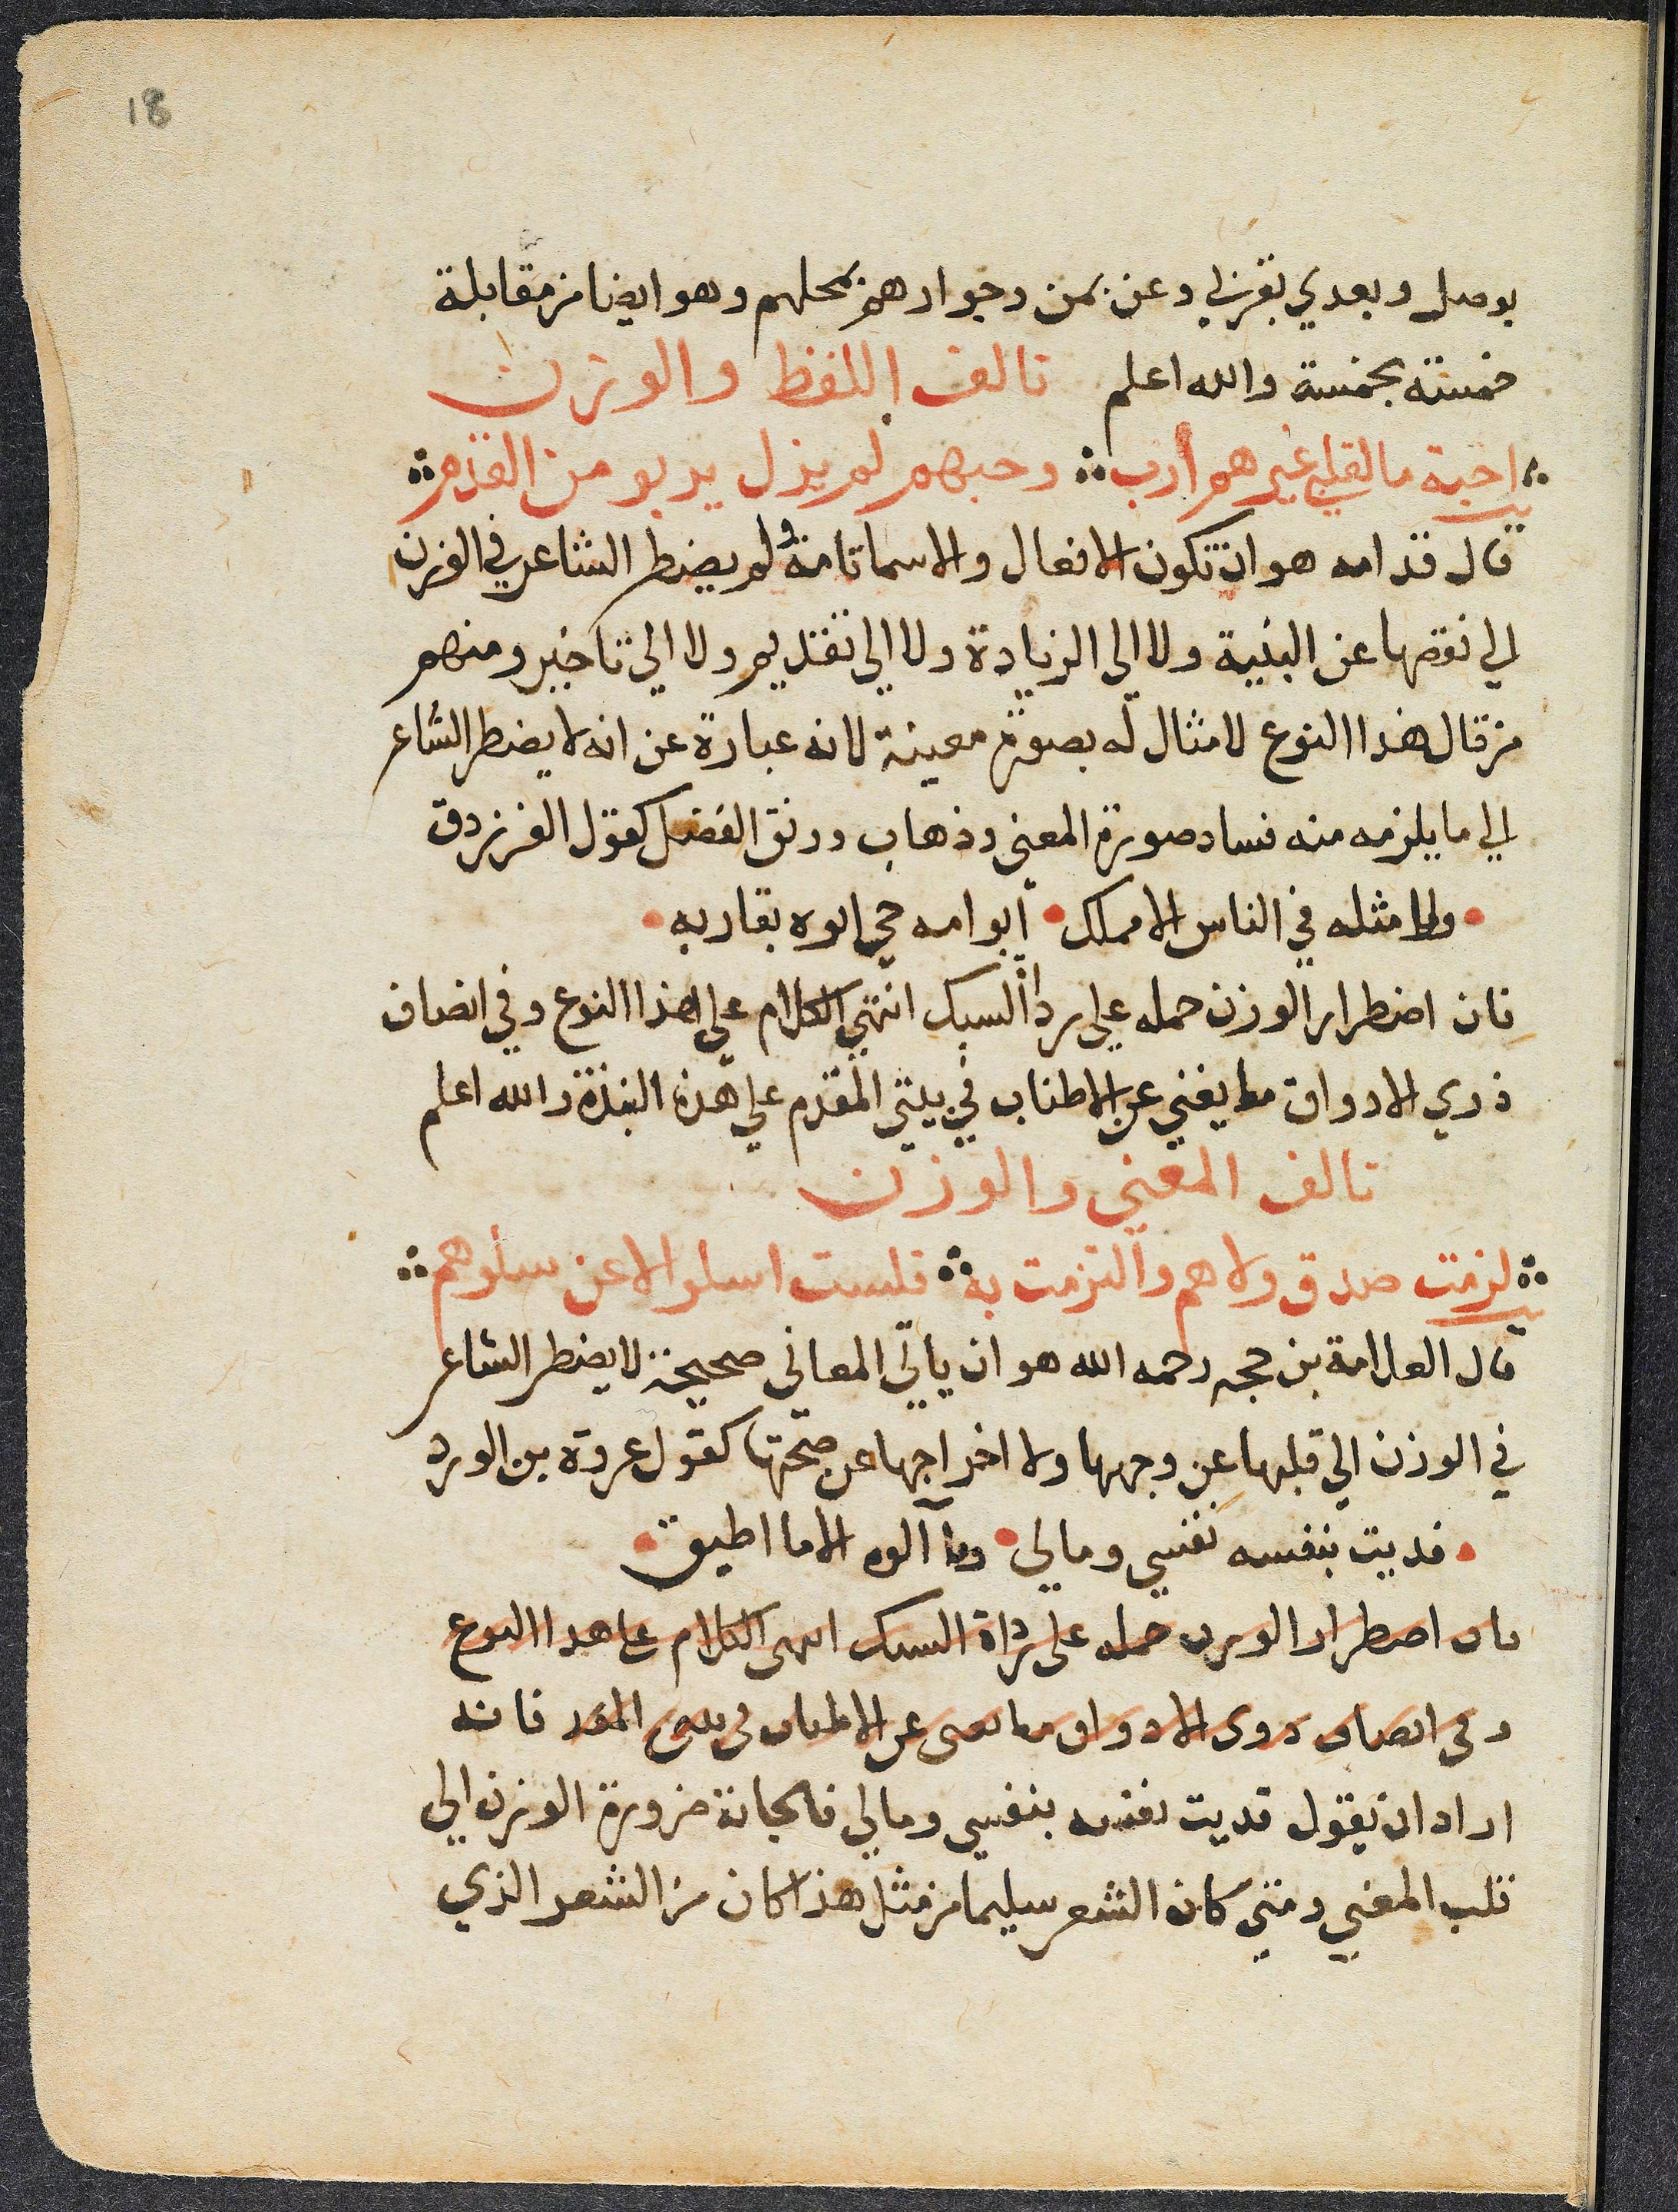 18
بوصل وبعدي بقربي وعن بمن وجوارهم بمحلهم وهو ايضا من مقابلة
خمسة بخمسة والله اعلم تالف اللفظ والوزن
احبة ما لقلبي غيرهم أرب وحبهم لم يزل يربو من القدم
قال قدامه هو ان تكون الافعال والاسما تامة ولم يضطر الشاعر في الوزن
الي نقصها عن البنية ولا الى الزيادة ولا الي تقديم ولا الي تاخير ومنهم
من قال هذا النوع لا مثال له بصورة معينة لانه عبارة عن انه لا يضطر الشاعر
الي ما يلزمه منه فساد صورة المعني وذهاب رونق الفضل كقول الفرزدق
وما مثله في الناس الا مملك أبو امه حي ابوه يقاربه
فان اضطرار الوزن حمله علي رداة السبك انتهي الكلام علي هذا النوع وفي انصاف
ذوي الادواق ما يغني عن الاطناب في بيتي المقدم علي هذه النبذة والله اعلم
تالف المعني والوزن
لزمت صدق ولاهم والتزمت به فلست اسلو الا عن سلوهم
قال العلامة بن حجه رحمه الله هو ان ياتي المعاني صحيحة لا يضطر الشاعر
في الوزن الي قلبها عن وجهها ولا اخراجها عن صحتها كقول عروة بن الورد
فديت بنفسه نفسي ومالي وما آلوه الا ما اطيق
فان اضطرار الوزن حمله على رداة السبك انتهى الكلام على هدا النوع
وفي انصاف دوى الادواق ما يغنى عن الاطناب في بيتي المقد فانه
اراد ان يقول فديت نفسه بنفسي ومالي فالجاته ضرورة الوزن الي
قلب المعني ومتي كان الشعر سليما من مثل هذا كان من الشعر الذي